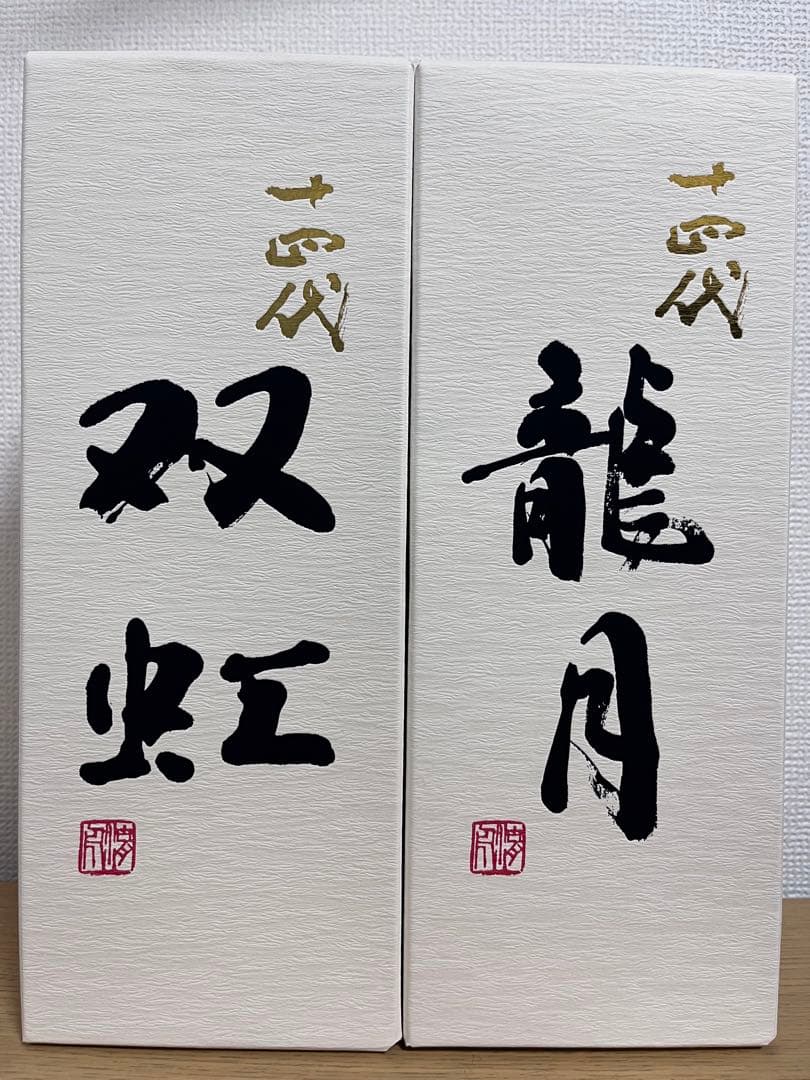 十四代
双虹
十四代
龍月